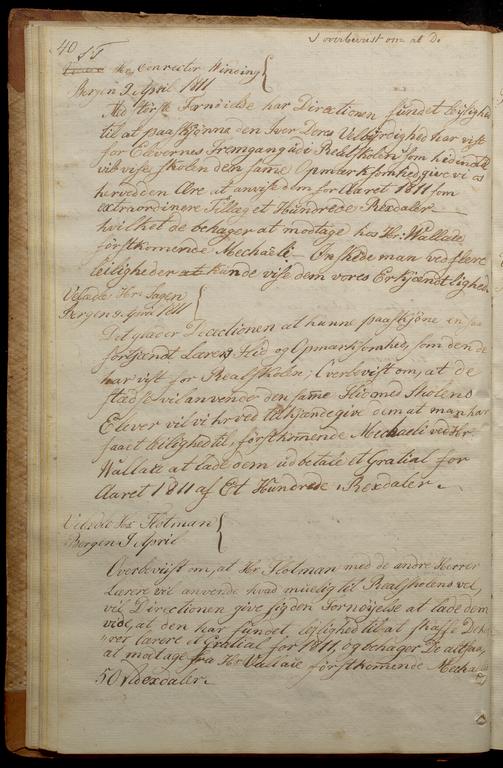 I overbevist om at De
40
S T
Hr Conrector Winding
Bergen 9 April 1811
Med største Fornøielse har Directionen fundet leilighed
til at paaskjønne den Iver Deres Velbyrdighed har vist
for Elevernes Fremgang udi Realskolen, som hidindtil
vil vise skolen den samme Opmærksomhed give vi os
herved den Ære at anvise dem for Aaret 1811 som
extraordinere Tillæg et Hundrede Rexdaler
hvilket de behager at modtage hos Hr: Wallace
førstkomende Mechaëli. Ønskede man ved flere
leiligheder at kunde vise dem vores Erkjændtlighed
Velædle Hr: Sagen
Bergen 9 April 1811
Det glæder Directionen at kunne paaskjöne en saa
fortjændt Lærers Flid og Opmærksomhed, som den de
har vist for Realskolen; Overbevist om, at de
stædse vil anvende den same Flid med Skolens
Elever vil vi hrved tilkjendegive dem at man har
faaet leilighed til, förstkomende Mechaeli ved Hr.
Wallace at lade dem udbetale et Gratial for
Aaret 1811 af Et Hundrede Rexdaler.
Velædle Hr Flotman
Bergen 9 April
Overbeviist om, at Hr Flotman med de andre Herrer
Lærere vil anvende hvad muelig til Realskolens vel,
vil Directionen give sig den Fornöyelse at lade dem
vide, at den har fundet leylighed til at skaffe De her
"ver lærere et Gratial for 1811, og behager De altsaa
at motage fra Hr Wallace förstkomende Mechaeli
50 Ridexdaler.